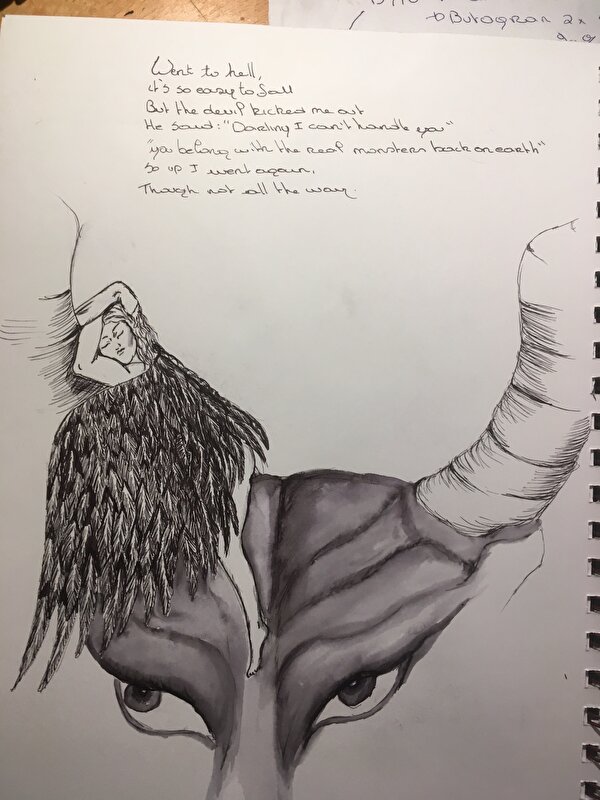 Butagran 2x
Went to hell,
it's so easy to fall
But the devil kicked me out
He said: "Darling I can't handle you"
"you belong with the real monsters back on earth"
so up I went again.
Though not all the way.